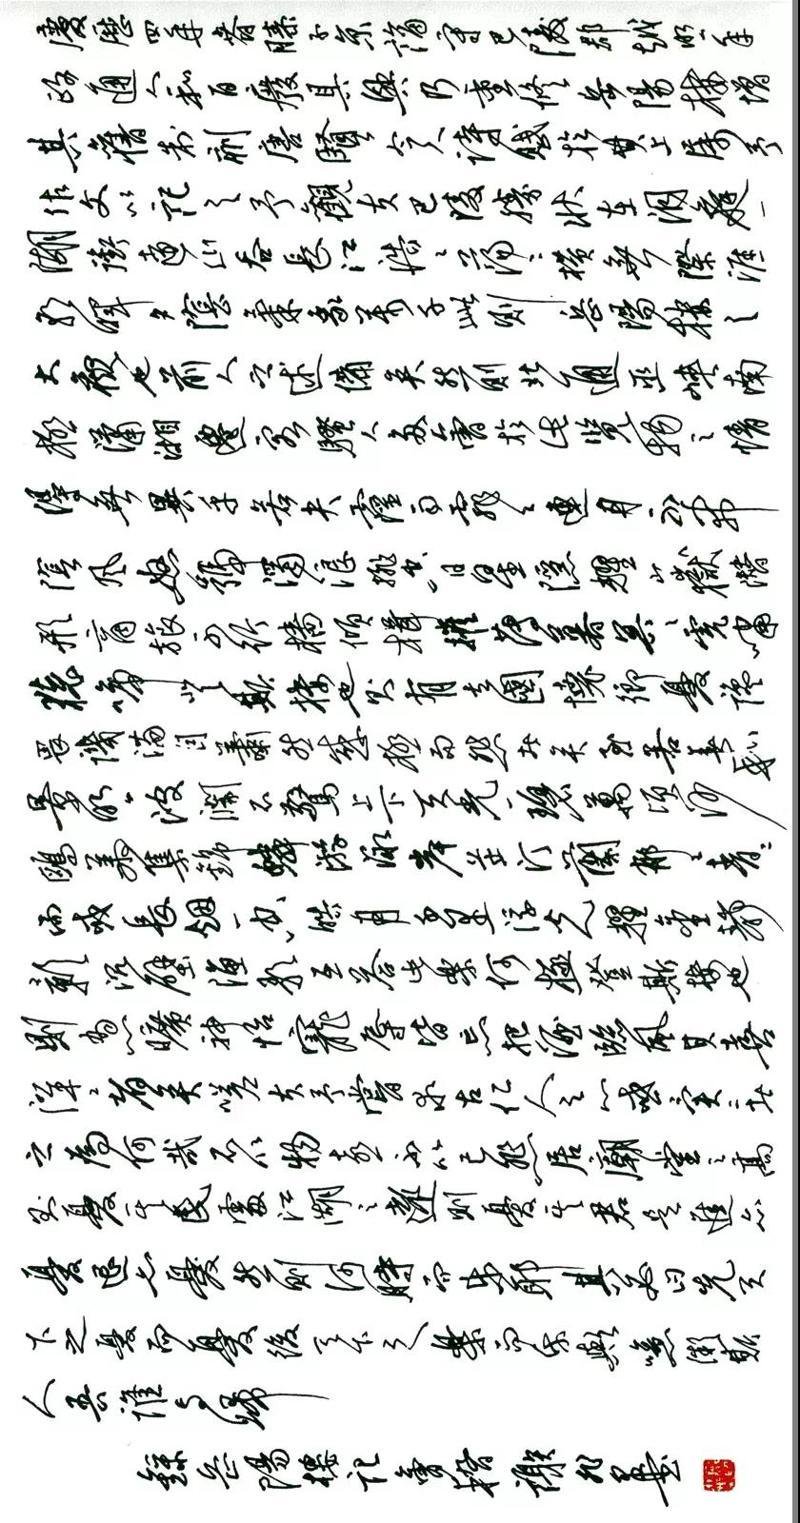 慶歷四年春滕子京謫守巴陵郡越明年
政通人和百廢具興乃重修岳陽樓增
其舊制刻唐賢今人詩賦於其上屬予
作文以記之予觀夫巴陵勝狀在洞庭一
湖銜遠山吞長江浩々湯々橫無際涯
朝暉夕陰氣象萬千此則岳陽樓之
大觀也前人之述備矣然則北通巫峽南
極瀟湘遷客騷人多會於此覽物之情
得無異乎若夫霪雨霏々連月不開
陰風怒號濁浪排空日星隱耀山嶽潛
形商旅不行檣傾楫摧薄暮冥々虎嘯
猿啼登斯樓也則有去國懷鄉憂讒
畏譏滿目蕭然感極而悲者矣至若春和
景明波瀾不驚上下天光一碧萬頃沙
鷗翔集錦鱗游泳岸芷汀蘭郁々青々
而或長煙一空皓月千里浮光耀金靜
影沉璧漁歌互答此樂何極登斯樓也
則有心曠神怡寵辱皆忘把酒臨風其喜
洋々者矣嗟夫予嘗求古仁人之心或異二者
之為何哉不以物喜不以己悲居廟堂之高
則憂其民處江湖之遠則憂其君是進亦
憂退亦憂然則何時而樂耶其必曰先天
下之憂而憂後天下之樂而樂歟噫微斯
人吾誰與歸
錄岳陽樓記會稽謝